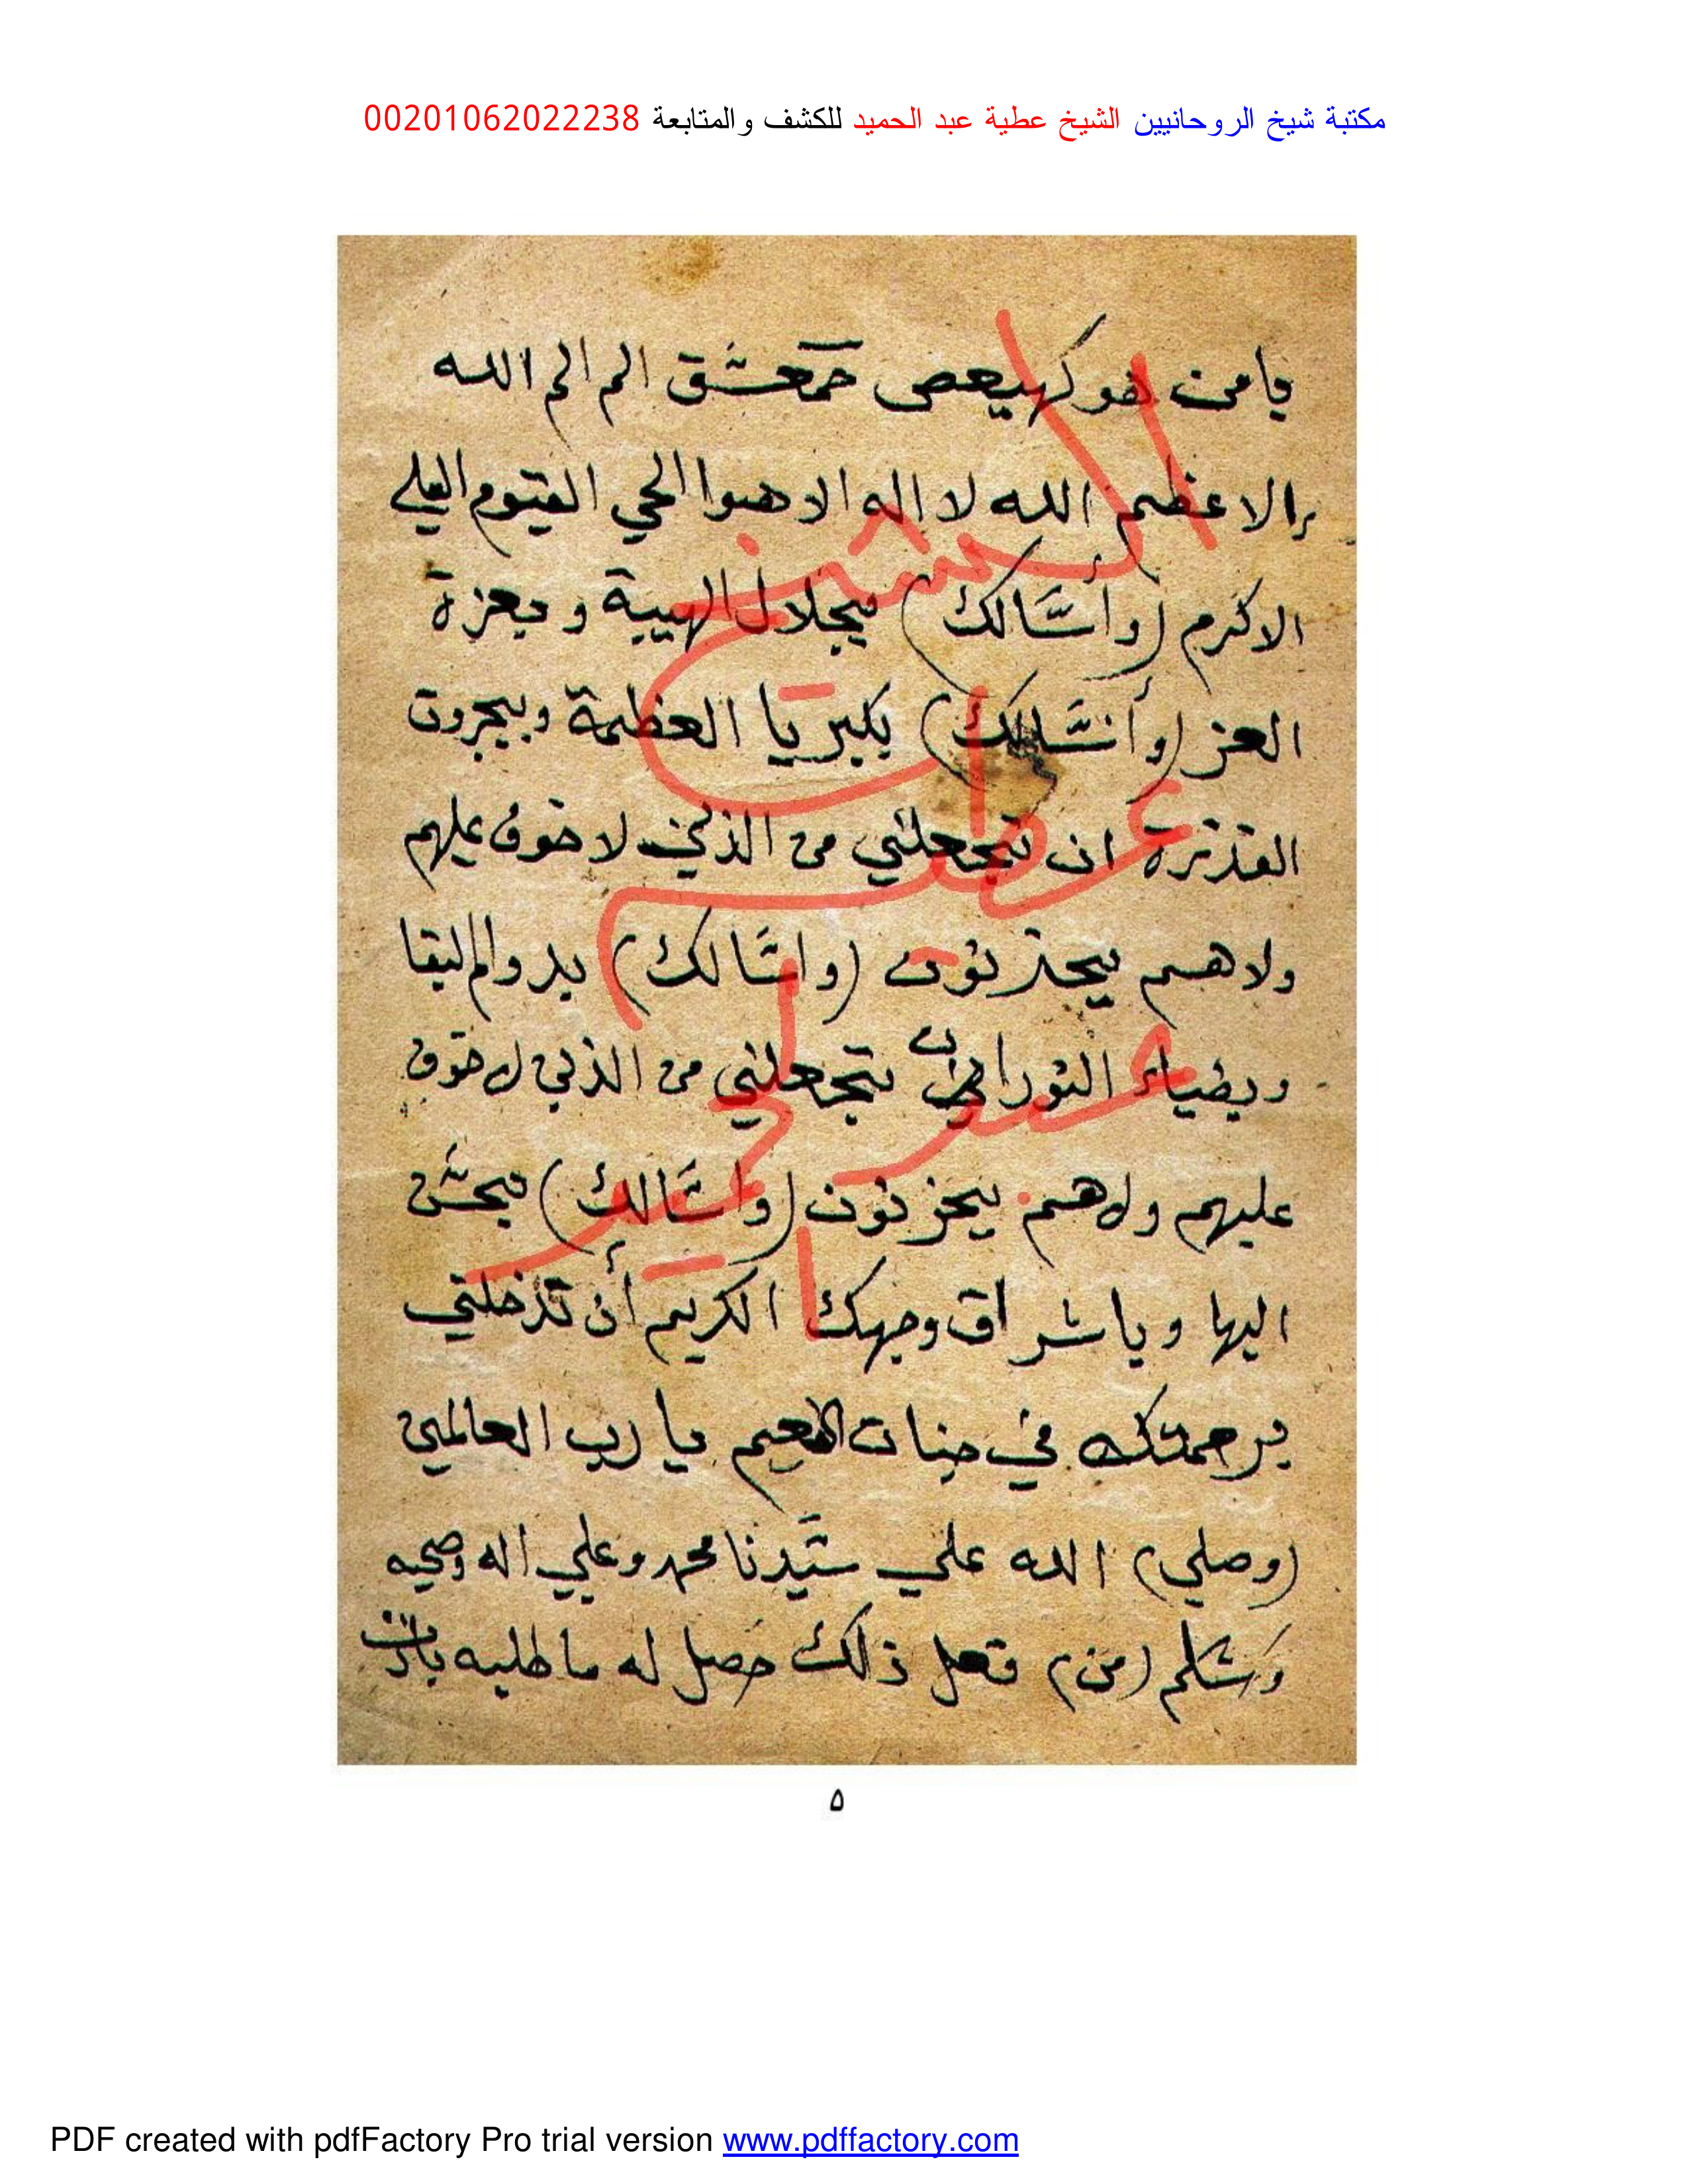 مكتبة شيخ الروحانيين الشيخ عطية عبد الحميد للكشف والمتابعة 00201062022238
يا من هو كهيعص حمعسق الم الم الله
الاعظم الله لا إله الا هوا الحي القيوم العلي
الاكرم (وأسالك) بجلال الهيبة وبعزة
العز (وأسالك) بكبريا العظمة وبجبروت
القدرة ان تجعلني من الذين لا خوف عليهم
ولا هم يحزنون (واسالك) بدوام البقا
وبضياء النور ان تجعلني من الذين لا خوف
عليهم ولا هم يحزنون (واسالك) بحسن
البها وباشراق وجهك الكريم أن تدخلني
برحمتك في جنات النعيم يا رب العالمين
(وصلي) الله علي سيدنا محمد وعلي اله وصحبه
وسلم (من) فعل ذلك حصل له ما طلبه
٥
PDF created with pdfFactory Pro trial version www.pdffactory.com